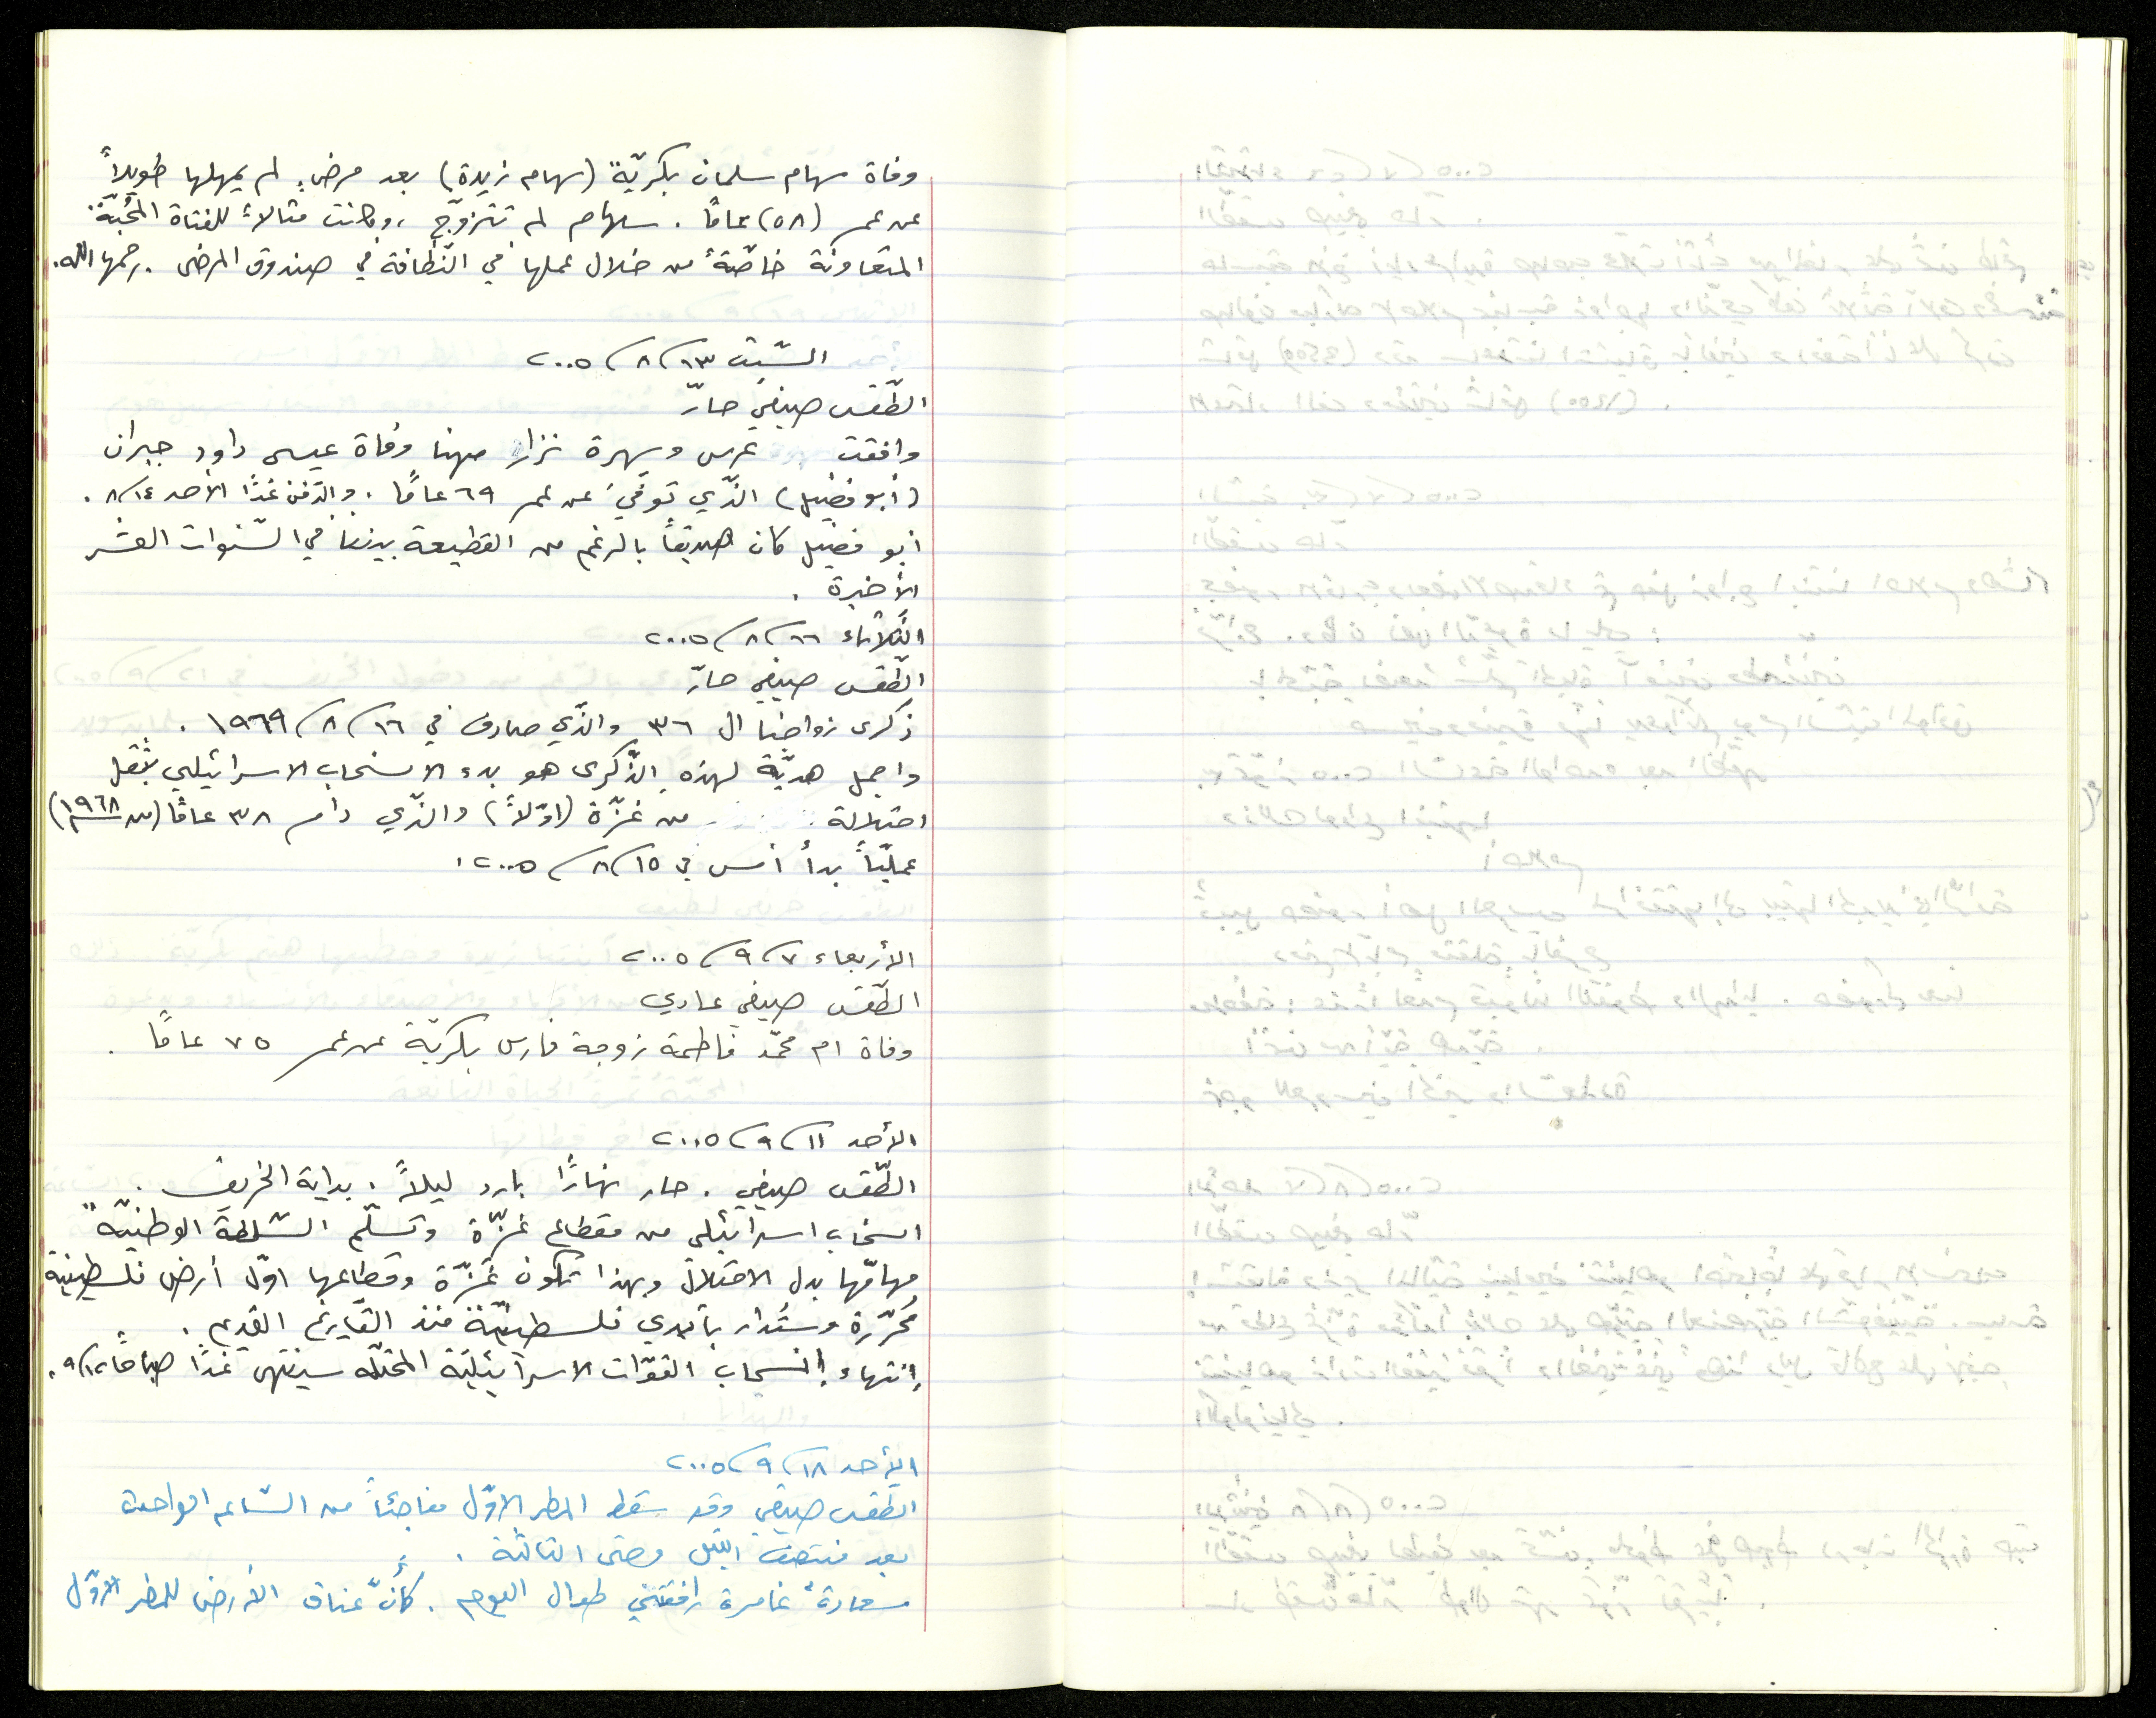 وفاة سهام سلمان بكريّة (سهام زيدة) بعد مرض لم يمهلها طويلاً
عن عمر (٥٨) عامًا. سهام لم تتزوّج، وكانت مثالاً للفتاة المُحبّة
المتعاونة خاصّة من خلال عملها في النّظافة في صندوق المرضى. رحمها الله.
السّبت ١٣/٨/٢٠٠٥
الطّقس صيفي حارّ
وافقت عرس وسهرة نزار مهنا وفاة عيسى داود جبران
(أبو فضيل) الذّي توفّي عن عمر ٦٩ عامًا. والدّفن غدًا الأحد ٨/١٤.
ابو فضيل كان صديقاً بالرغم من القطيعة بيننا في السّنوات العشر
الأخيرة.
الثّلاثاء ١٦/٨/٢٠٠٥
الطّقس صيفي حارّ
ذكرى زواجنا ال ٣٦ والذّي صادف في ١٦/٨/١٩٦٩.
واجمل هديّة لهذه الذّكرى هو بدء الانسحاب الاسرائيلي بثقل
احتلاله من غزّة (اوّلاً) والذّي دام ٣٨ عامًا (من ١٩٦٨)
عمليّاً بدأ أمس في ١٥/٨/٢٠٠٥.
الأربعاء ٧/٩/٢٠٠٥
الطّقس صيفي عادي
وفاة ام محمّد فاطمة زوجة فارس بكريّة عن عمر ٧٥ عامًا.
الأحد ١١/٩/٢٠٠٥
الطّقس صيفي. حار نهارًا بارد ليلاً. بداية الخريف.
انسحاب اسرائيلي من مقطاع غزّة وتسلّم السّلطة الوطنيّة
مهامّها بدل الاحتلال وبهذا تكون غزّة وقطاعها اوّل أرض فلسطينية
مُحرّرة وستُدار بأيدي فلسطينيّة منذ التّاريخ القديم.
إنتهاء إنسحاب القوّات الاسرائيليّة المحتلّه سينتهي غدًا صباحًا ٩/١٢.
الأحد ١٨/٩/٢٠٠٥
الطّقس صيفي وقد سقط المطر الاوّل مفاجئاً من السّاعه الواحدة
بعد منتصف الليل وحتى الثالثة.
سعادة غامرة رافقتني طوال اليوم. كأنّ عناق الأرض للمطر الاوّل